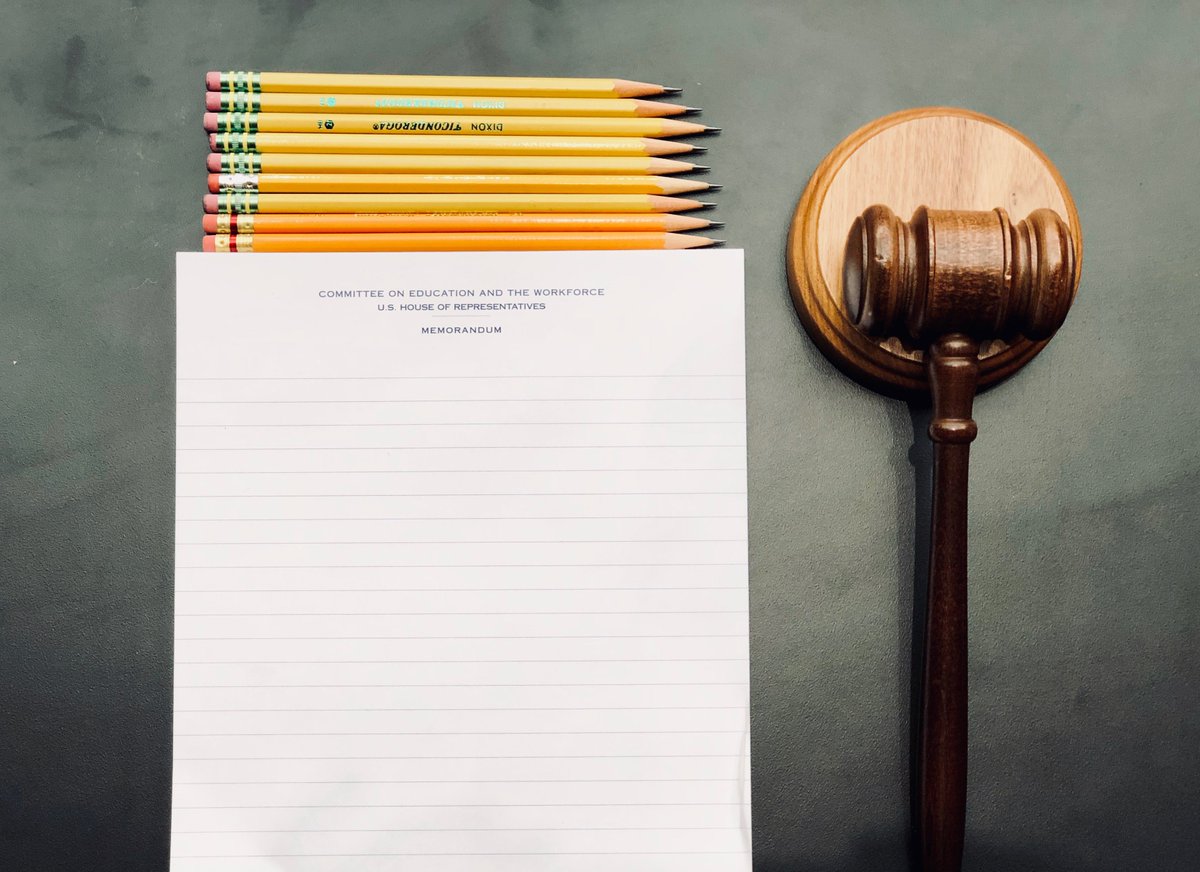 DIXON TICONDEROGA®
COMMITTEE ON EDUCATION AND THE WORKFORCE
U.S. HOUSE OF REPRESENTATIVES
MEMORANDUM